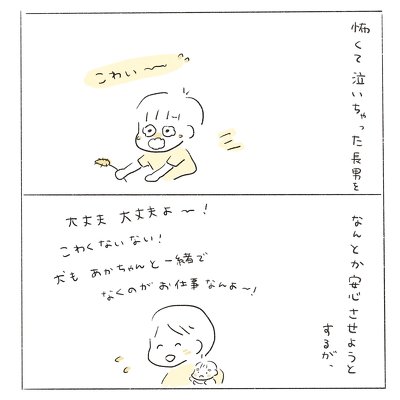 怖くて泣いちゃった長男を
こわい〜
なんとか安心させようと
するが、
大丈夫 大丈夫よ〜!
こわくないない!
犬も あかちゃんと一緒で
なくのがお仕事なんよ〜!